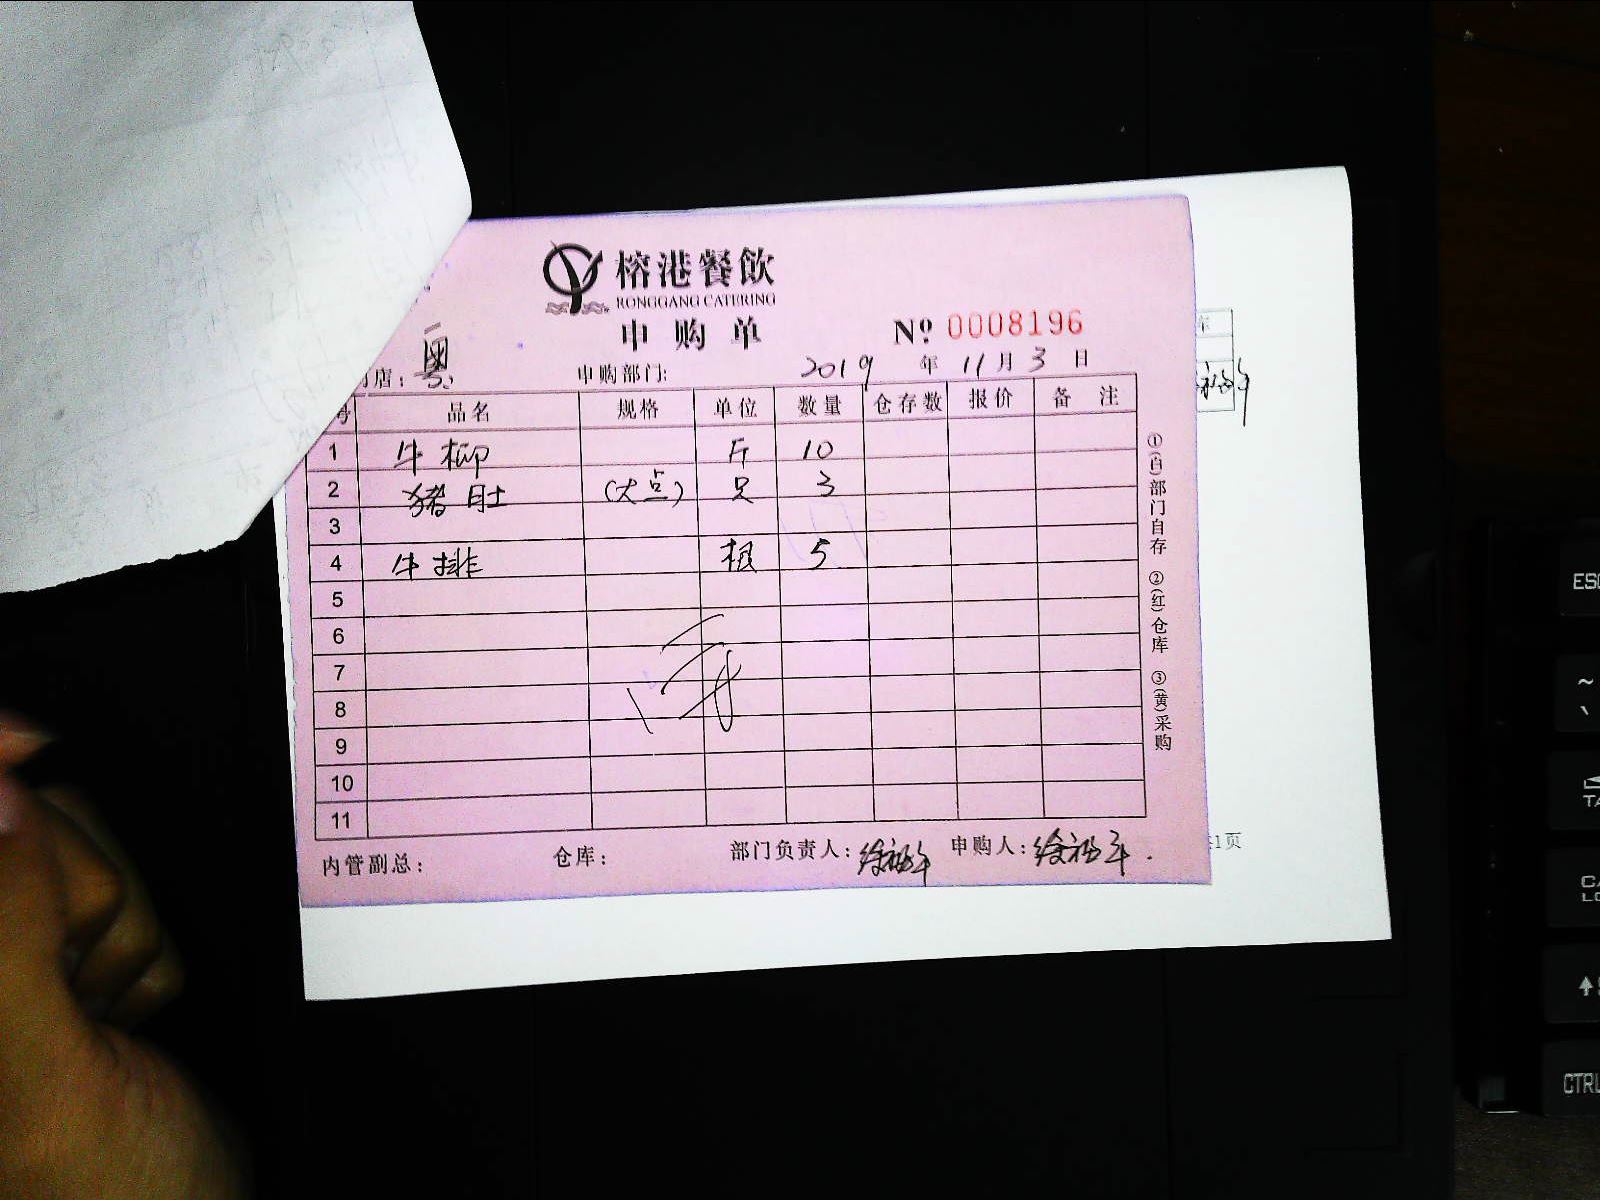 榕港餐飲
RONGGANG CATERING
申购单
Nº: 0008196
店: 粤 申购部门: 2019 年 11 月 3 日
号 品名 规格 单位 数量 仓存数 报价 备 注
1 牛柳 斤 10
2 猪肚 (大点) 只 3
3
4 牛排 根 5
5
6
7
8
9
10
11
①(白)部门自存 ②(红)仓库 ③(黄)采购
内管副总: 仓库: 部门负责人: 申购人:
1页
ESC
~
TA
CA
LO
CTRL